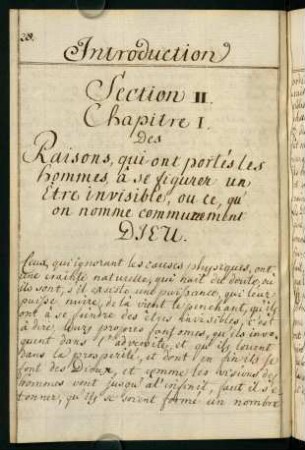 28.
Introduction
Section II.
Chapitre I.
Des
Raisons, qui ont portés les
hommes, à se figurer un
Etre invisible, ou ce, qu'
on nomme communement
DIEU.
Ceux, qui ignorant les causes physiques, ont
une crainte naturelle, qui nait du doute, ou
ils sont, s'il existe une puissance, qui leur
puisse nuire, de là vient le penchant, qu'ils
ont à se feindre des êtres invisibles, c'est
à dire, leurs propres fantomes, qu'ils invo-
quent dans l'adversité, et qu'ils louent
dans la prosperité, et dont en fin ils se
font des Dieux, et comme les visions des
hommes vont jusqu'al'infinit, faut il s'é-
tonner, qu'ils se soient formé un nombre